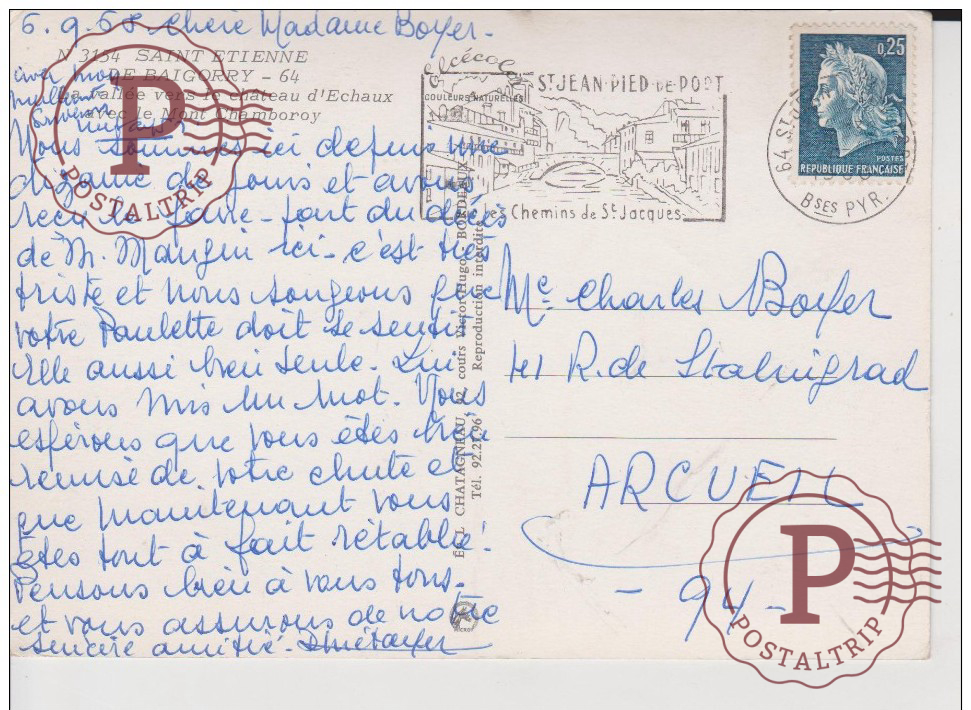 6.9.68. Chère Madame Boyer -
N 3154 SAINT ETIENNE
DE BAIGORRY - 64
La vallée vers le château d'Echaux
avec le Mont Chamboroy
Nous sommes ici depuis une
dizaine de jours et avons
reçu le faire-part du décès
de M. Mangin ici - c'est très
triste et nous songeons que
votre Paulette doit se sentir
elle aussi bien seule. Lui
avons mis un mot. Nous
espérons que vous êtes bien
remise de votre chute et
que maintenant vous
êtes tout à fait rétablie!
Pensons bien à vous tous -
et vous assurons de notre
sincère amitié -
COULEURS NATURELLES
ÉD. L. CHATAGNEAU, 92, cours Victor-Hugo, BORDEAUX
Tél. 92.27.96 Reproduction interdite
ST JEAN-PIED-DE-PORT
Les Chemins de St Jacques
64 ST
BSES PYR.
0,25
POSTES
REPUBLIQUE FRANÇAISE
Me Charles Boyer
41 R. de Stalingrad
ARCUEIL
- 94 -
P
POSTALTRIP
P
POSTALTRIP